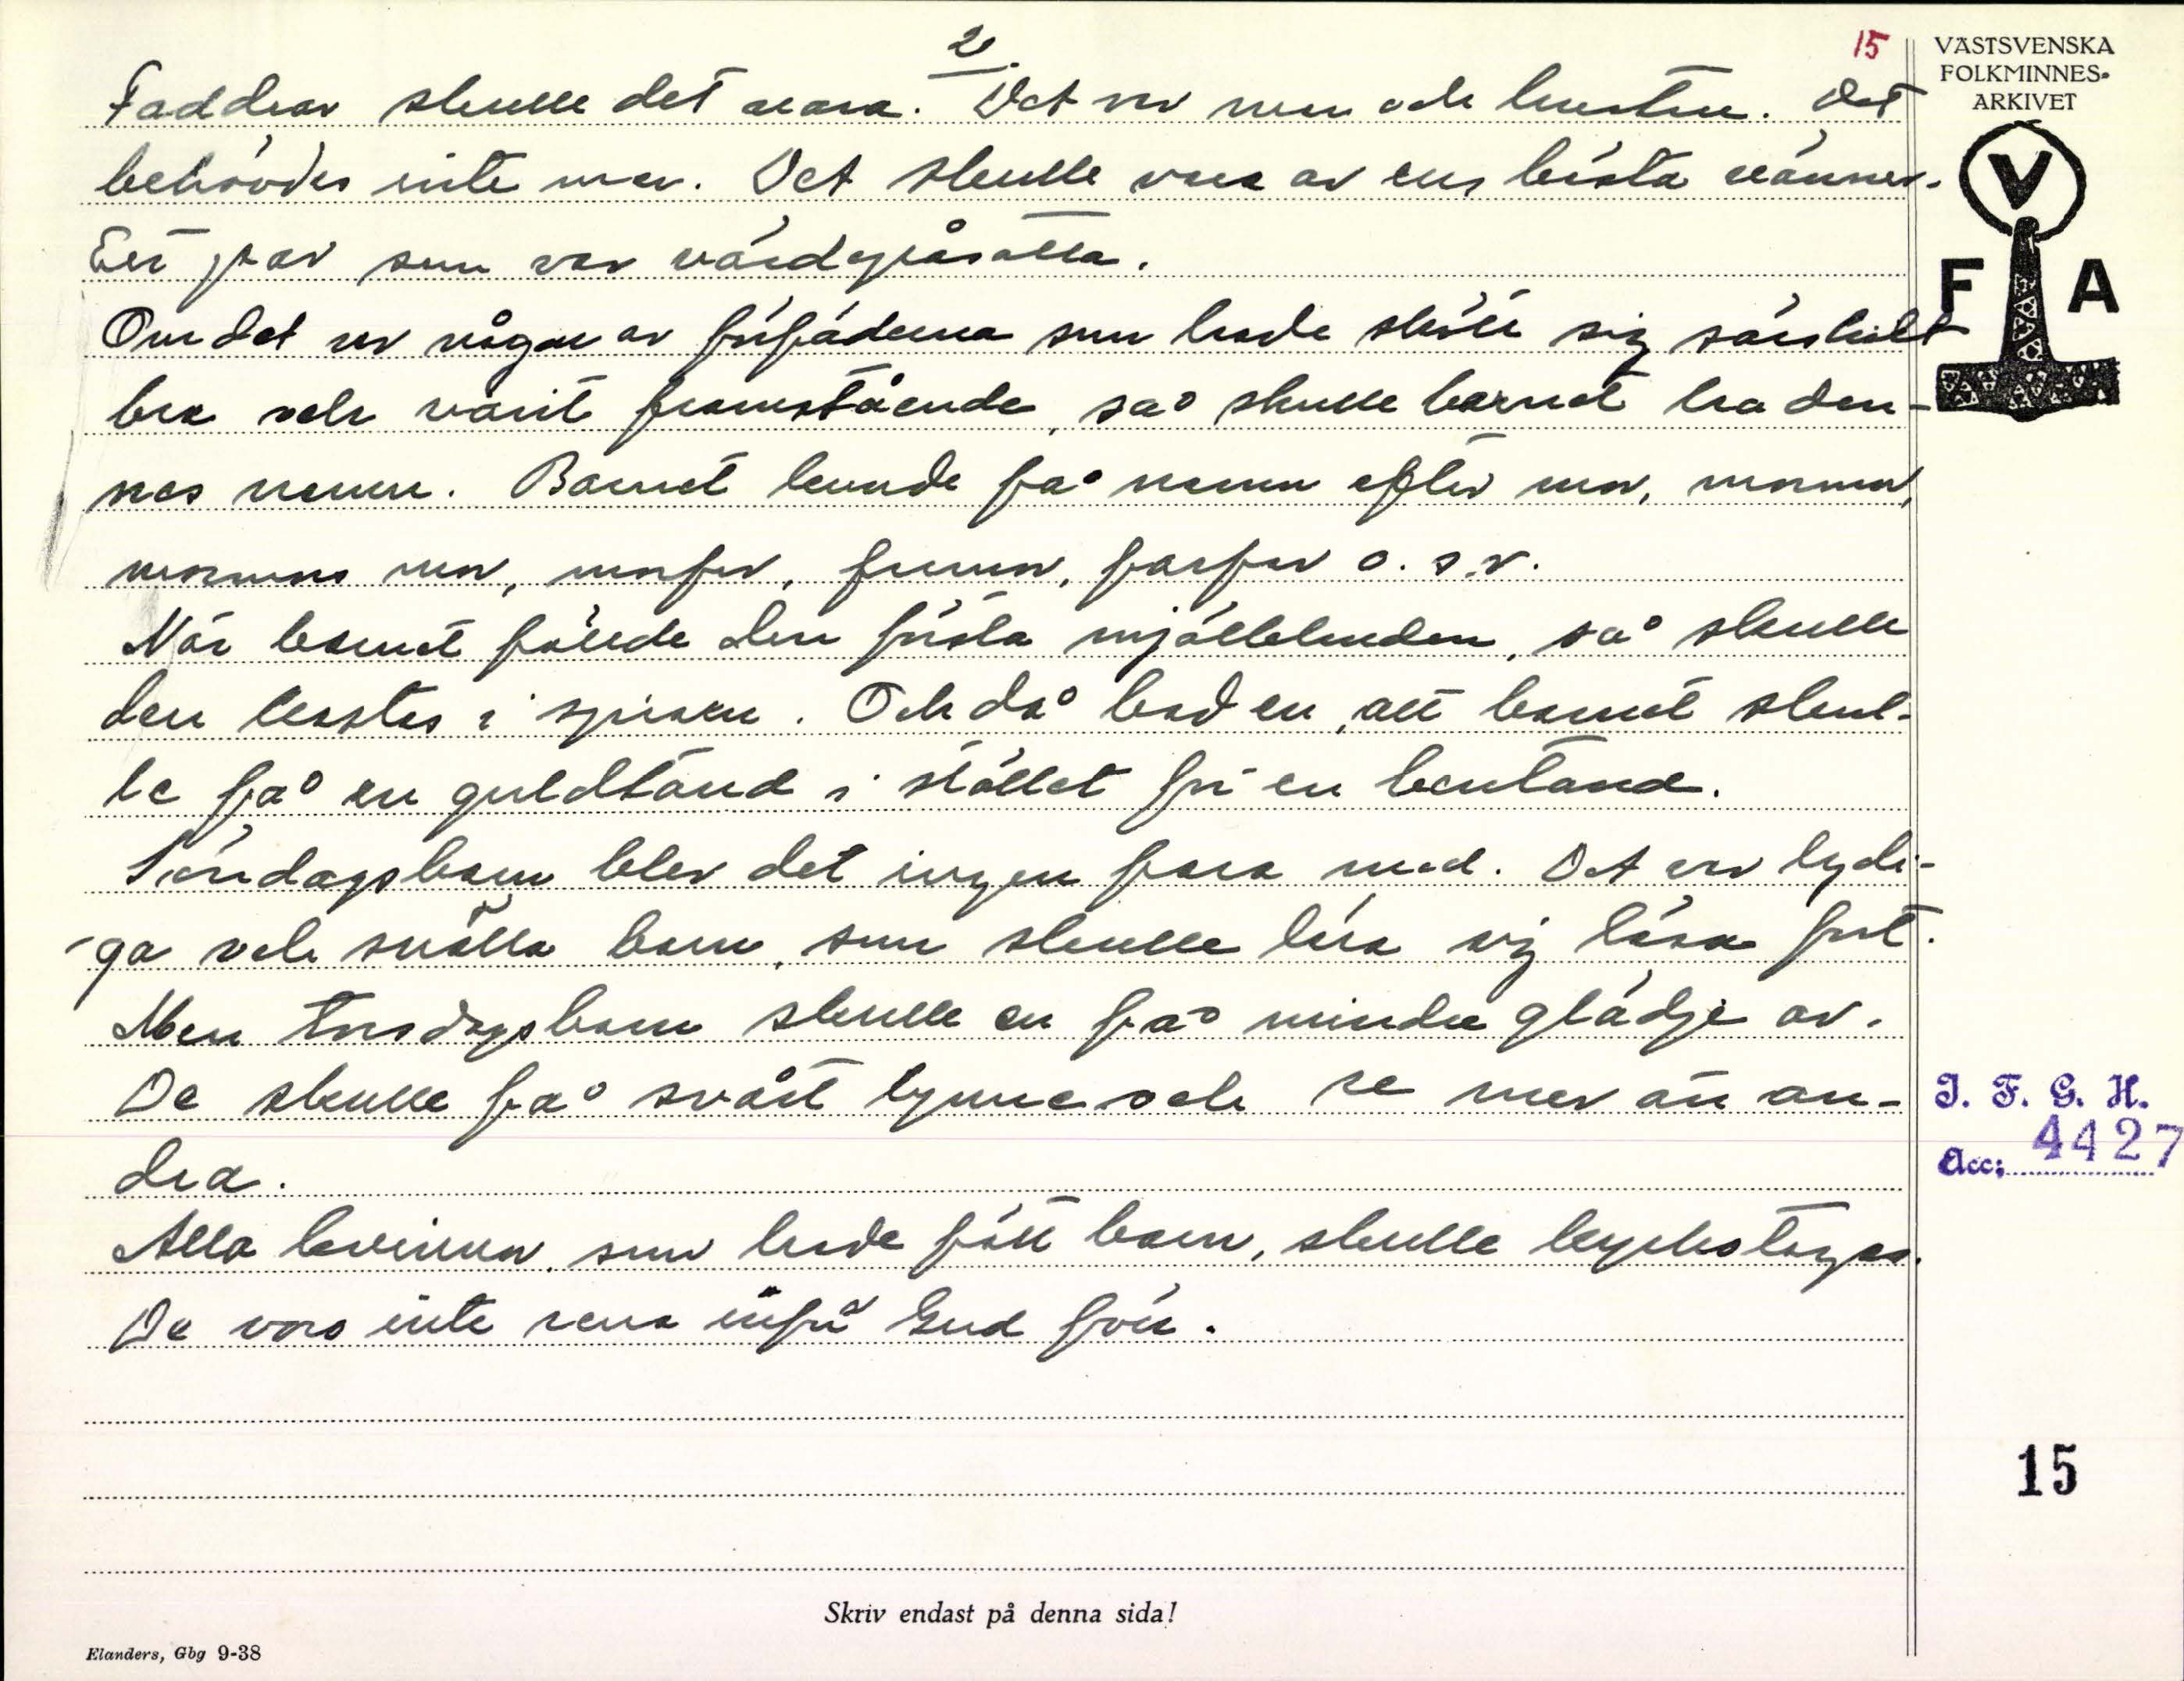 2.
15
Faddrar skulle det vara. Det var man och hustru. Det
behövdes inte mer. Det skulle vara av ens bästa vänner.
Ett par som var värdepåsatta.
Om det var någon av förfäderna som hade skött sig särskilt
bra och varit framstående, så skulle barnet ha den-
nes namn. Barnet kunde få namn efter mor, mormor,
mormors mor, morfar, farmor, farfar o.s.v.
När barnet fällde den första mjölktanden, så skulle
den kastas i spisen. Och då bad en, att barnet skul-
le få en guldtand i stället för en bentand.
Söndagsbarn blev det ingen fara med. Det var lydi-
ga och snälla barn, som skulle lära sig läsa fort.
Men torsdagsbarn skulle en få mindre glädje av.
De skulle få svårt lynne och se mer än an-
dra.
Alla kvinnor, som hade fått barn, skulle kyrkotagas.
De voro inte rena inför Gud förr.
VÄSTSVENSKA
FOLKMINNES-
ARKIVET
V
F A
I. F. G. H.
Acc: 4427
15
Skriv endast på denna sida!
Elanders, Gbg 9-38